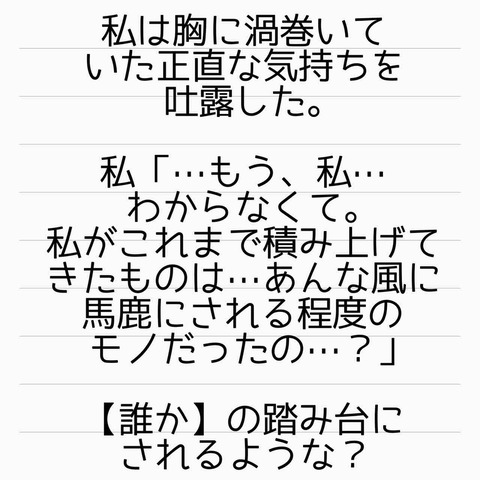 私は胸に渦巻いて
いた正直な気持ちを
吐露した。
私「…もう、私…
わからなくて。
私がこれまで積み上げて
きたものは…あんな風に
馬鹿にされる程度の
モノだったの…？」
【誰か】の踏み台に
されるような？